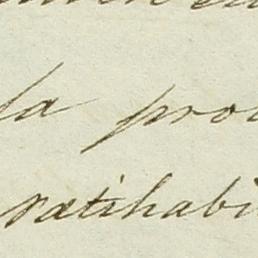 la pro
ratihabi